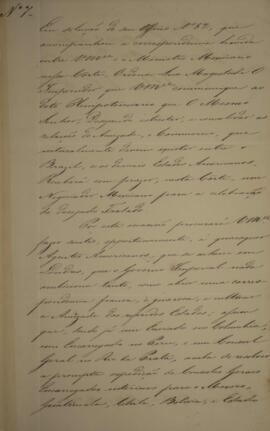 Nº 7.
Em solução do seu Officio Nº 62, que
acompanhou a correspondencia havida
entre VMce e o Ministro Mexicano
nessa Corte, Ordena Sua Magestade O
Imperador que VMce communique ao
dito Plenipotenciario que O Mesmo
Senhor, Desejando estreitar, e consolidar as
relações de Amizade, e Commercio, que
naturalmente devem existir entre o
Brazil, e os demais Estados Americanos,
Receberá com prazer, nesta Corte, um
Negociador Mexicano para a celebração
do desejado Tratado.
Por esta occasião procurará VMce
fazer sentir, opportunamente, a quaesquer
Agentes Americanos, que se achem em
Londres, que o Governo Imperial nada
ambiciona tanto, como abrir uma corres-
pondencia franca, e generosa, e cultivar
a Amizade dos referidos Estados, afim
que, tendo já um Enviado em Columbia,
um Encarregado no Perú, e um Consul
Geral no Rio da Prata, acaba de resolver
a prompta expedição de Consules Geraes
Encarregados interinos para o Mexico,
Guatemala, Chile, Bolivia, e Estados